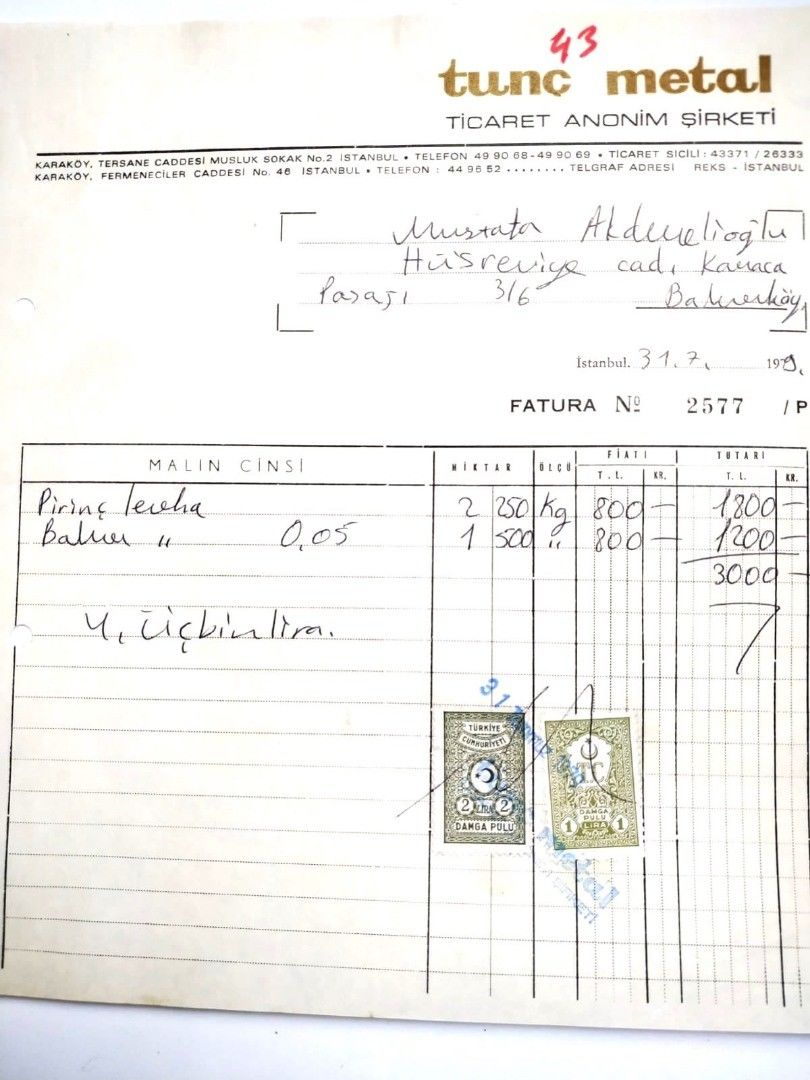 43
tunç metal
TİCARET ANONİM ŞİRKETİ
KARAKÖY, TERSANE CADDESİ MUSLUK SOKAK No.2 İSTANBUL • TELEFON 49 90 68-49 90 69 • TİCARET SİCİLİ: 43371 / 26333
KARAKÖY, FERMENECİLER CADDESİ No. 46 İSTANBUL • TELEFON : 44 96 52 ........ TELGRAF ADRESİ REKS - İSTANBUL
Mustafa
Hüsreviye cad. Karaca
Pasajı 3/6 Bakırköy
İstanbul. 31.7. 1979.
FATURA No 2577 /P
MALIN CİNSİ MİKTAR ÖLÇÜ FİATI TUTARI
T.L. KR. T.L. KR.
Pirinç levha 2 250 Kg 800 — 1800 —
Bakır " 0,05 1 500 " 800 — 1200 —
3000 —
Y. Üçbinlira.
TÜRKİYE
CUMHURİYETİ
2 LİRA 2
DAMGA PULU
T.C.
DAMGA
PULU
1 LİRA 1
31
Metal
ŞİRKETİ